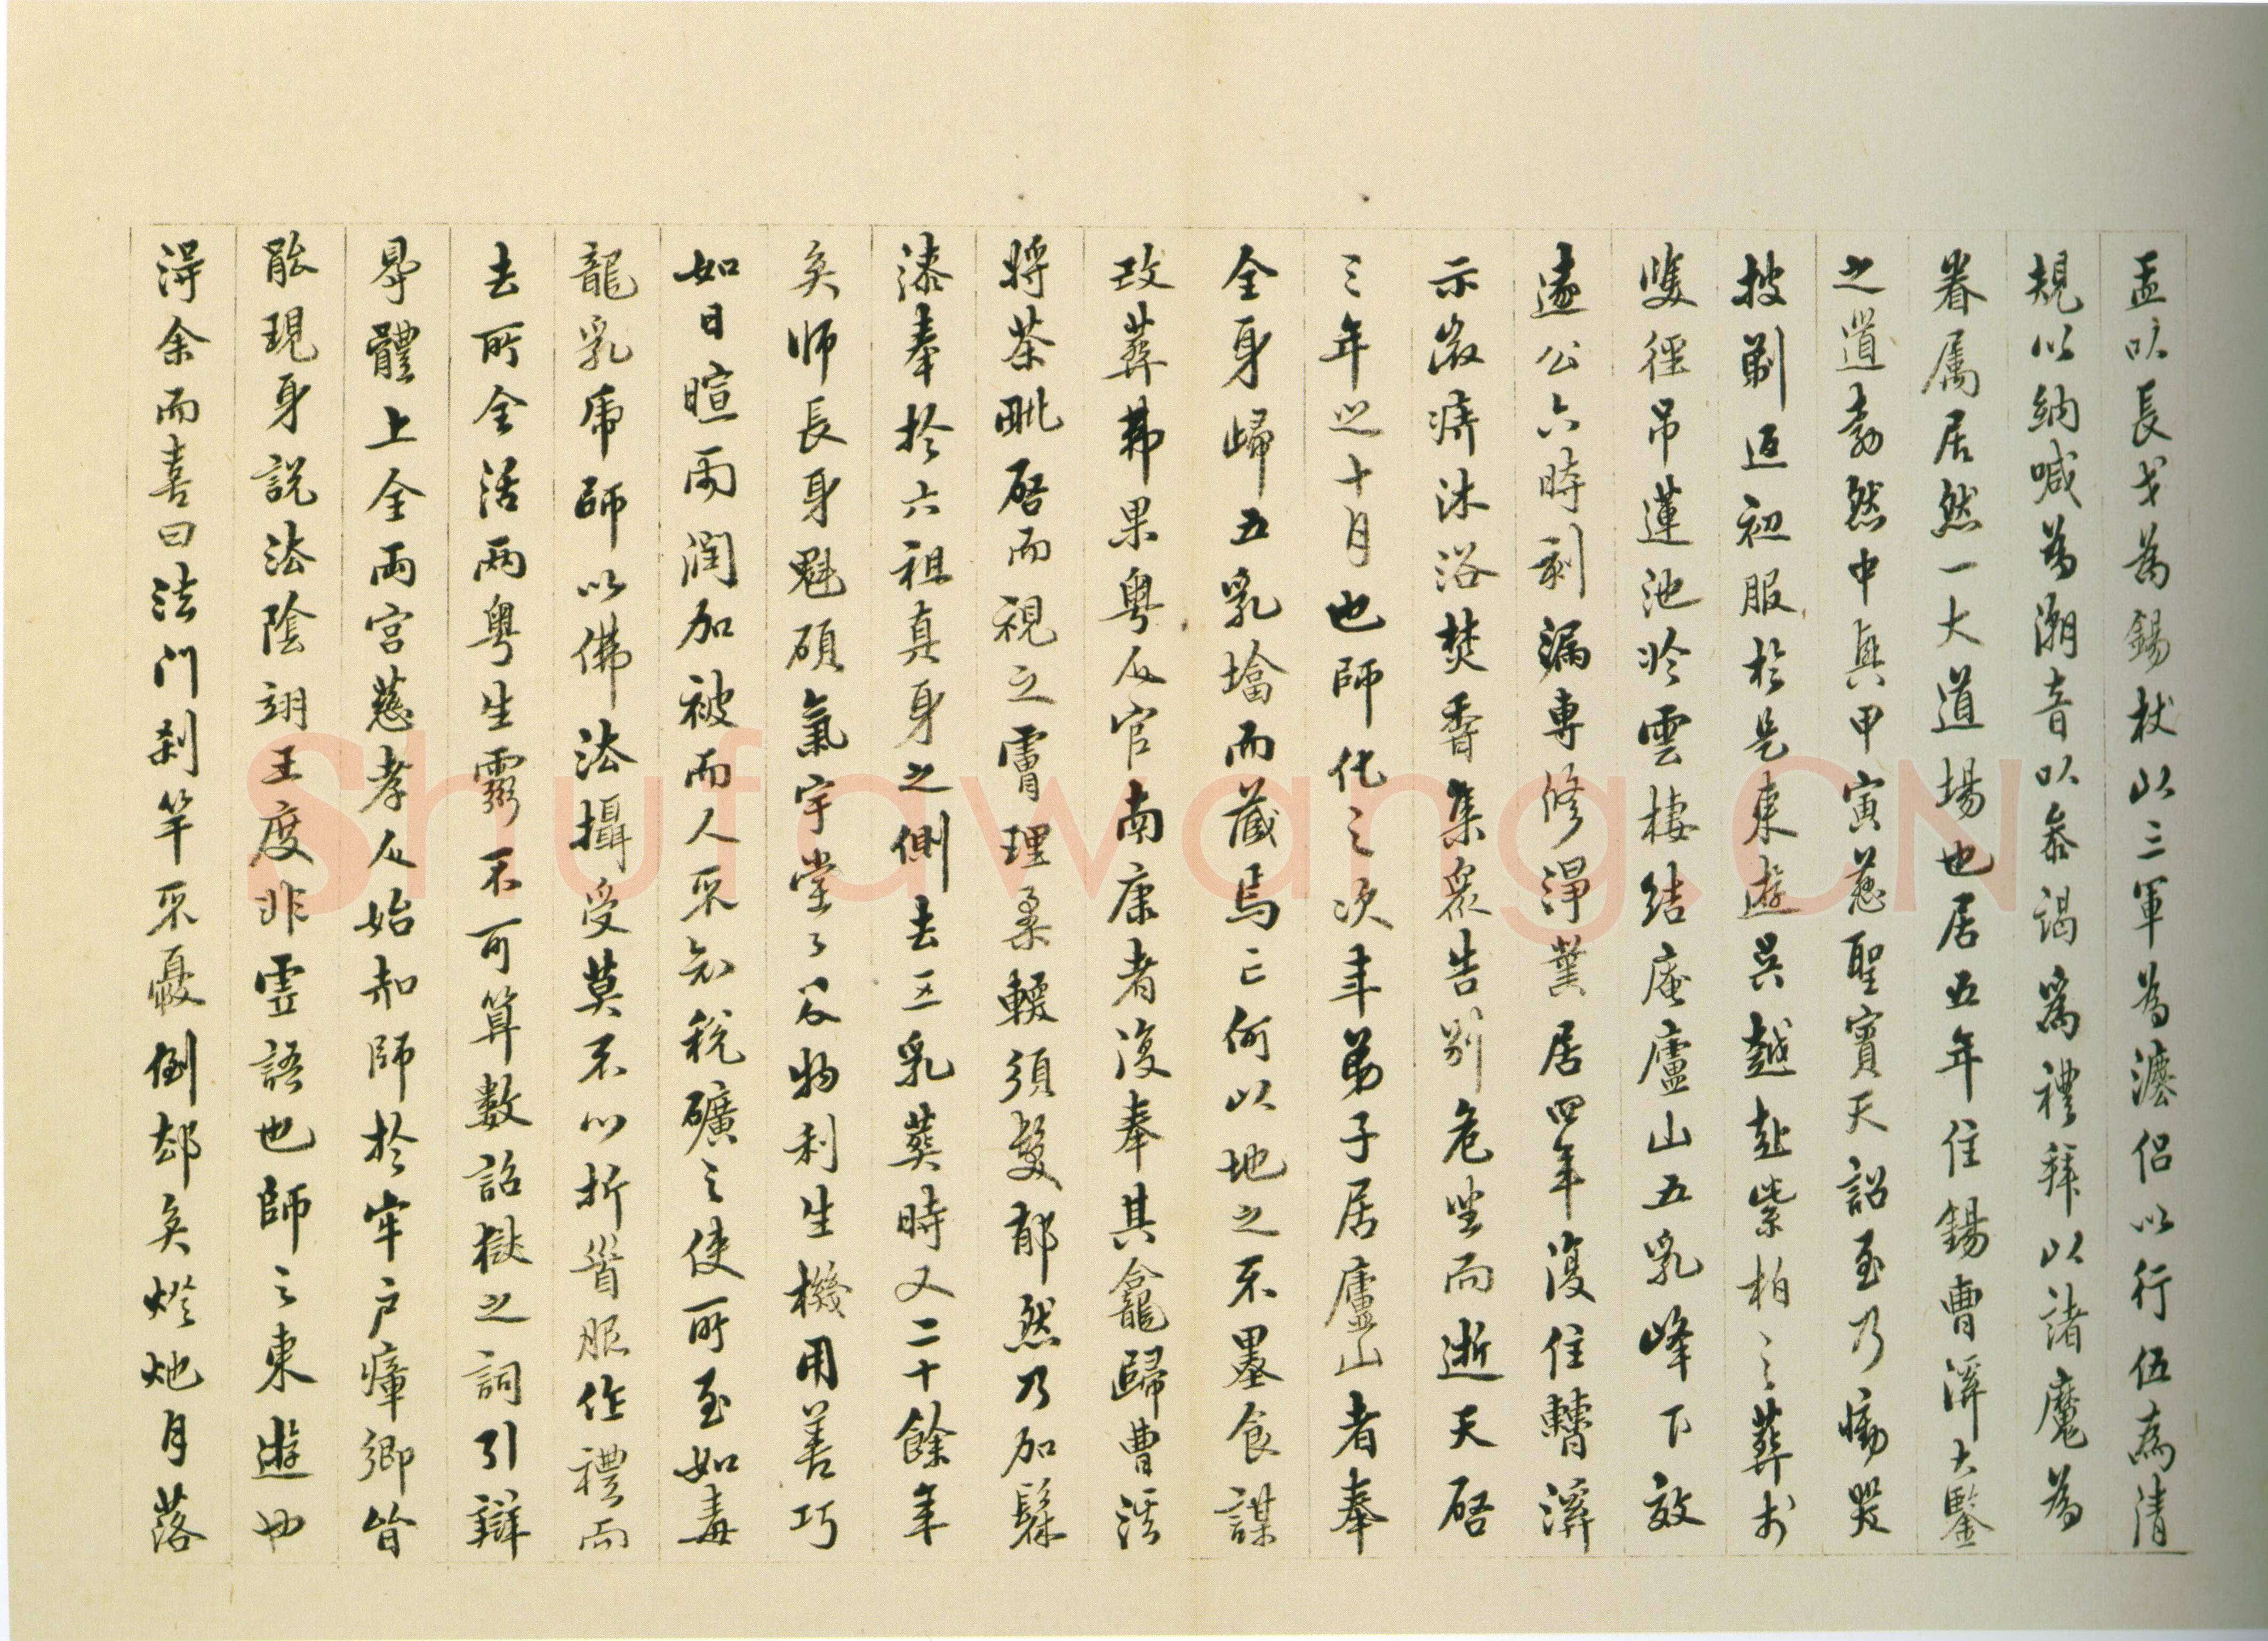 盂以長戈為錫杖以三軍為灋侶以行伍為清
規以納喊為潮音以參謁為禮拜以諸魔為
眷属居然一大道場也居五年住錫曹溪大鑒
之道勃然中興甲寅慈聖賓天詔至乃慟哭
披剃返初服於是東遊吳越赴紫柏之葬於
雙徑吊蓮池於雲棲結庵廬山五乳峰下效
遠公六時刻漏專修淨業居四年復住曹溪
示微疾沐浴焚香集眾告別危坐而逝天啓
三年之十月也師化之次年弟子居廬山者奉
全身歸五乳墖而藏焉亡何以地之不墨食謀
改葬弗果粵人官南康者復奉其龕歸曹溪
將茶毗啓而視之膚理柔輭須髮郁然乃加髹
漆奉於六祖真身之側去五乳葬時又二十餘年
矣師長身魁碩氣宇堂々及物利生機用善巧
如日暄雨潤加被而人不知稅礦之使所至如毒
龍乳虎師以佛法攝受莫不心折首服作禮而
去所全活兩粵生靈不可算數詔獄之詞引辯
舉體上全兩宮慈孝人始知師於牢户瘴鄉皆
能現身説法陰翊王度非虛語也師之東遊也
得余而喜曰法門刹竿不憂倒却矣燈灺月落
Shufawang.CN